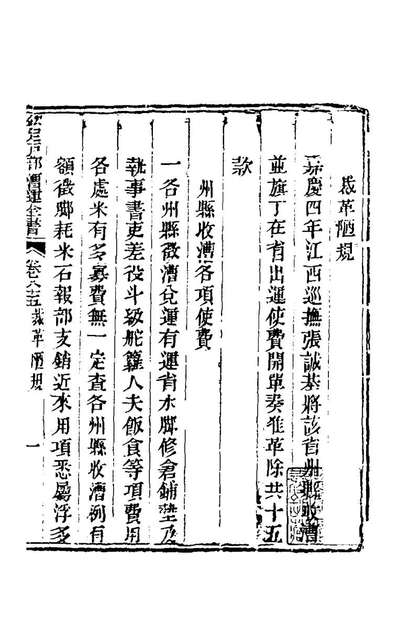 裁革陋規
一嘉慶四年江西巡撫張誠基將該省州縣收漕
並旗丁在省出運使費開單奏准革除共十五
款
州縣收漕各項使費
一各州縣徵漕兌運有運省水腳修倉鋪墊乃
執事書吏差役斗級舵籮人夫飯食等項費用
各處米有多寡費無一定查各州縣收漕例有
額徵腳耗米石報部支銷近來用項悉屬浮多
欽定戶部漕運全書
卷八十五裁革陋規
一